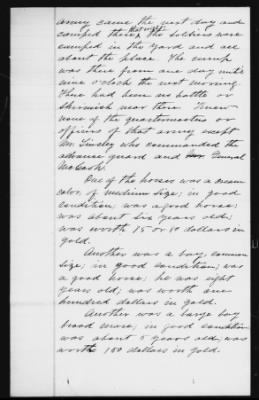 army came the next day and
camped there that night, the soldiers were
camped in the yard and all
about the place. The camp
was there from one day until
nine o'clock the next morning
There had been no battle or
skirmish near there. Knew
none of the quartermasters or
officers of that army except
Mr. Linsley who commanded the
advance guard and General
McCook.
One of the horses was a cream
color, of medium size; in good
condition; was a good horse;
was about six years old;
was worth 75 or 80 dollars in
gold.
Another was a bay, common
size; in good condition; was
a good horse; he was eight
years old; was worth one
hundred dollars in gold.
Another was a large bay
brood mare; in good condition
was about 5 years old; was
worth 150 dollars in gold.